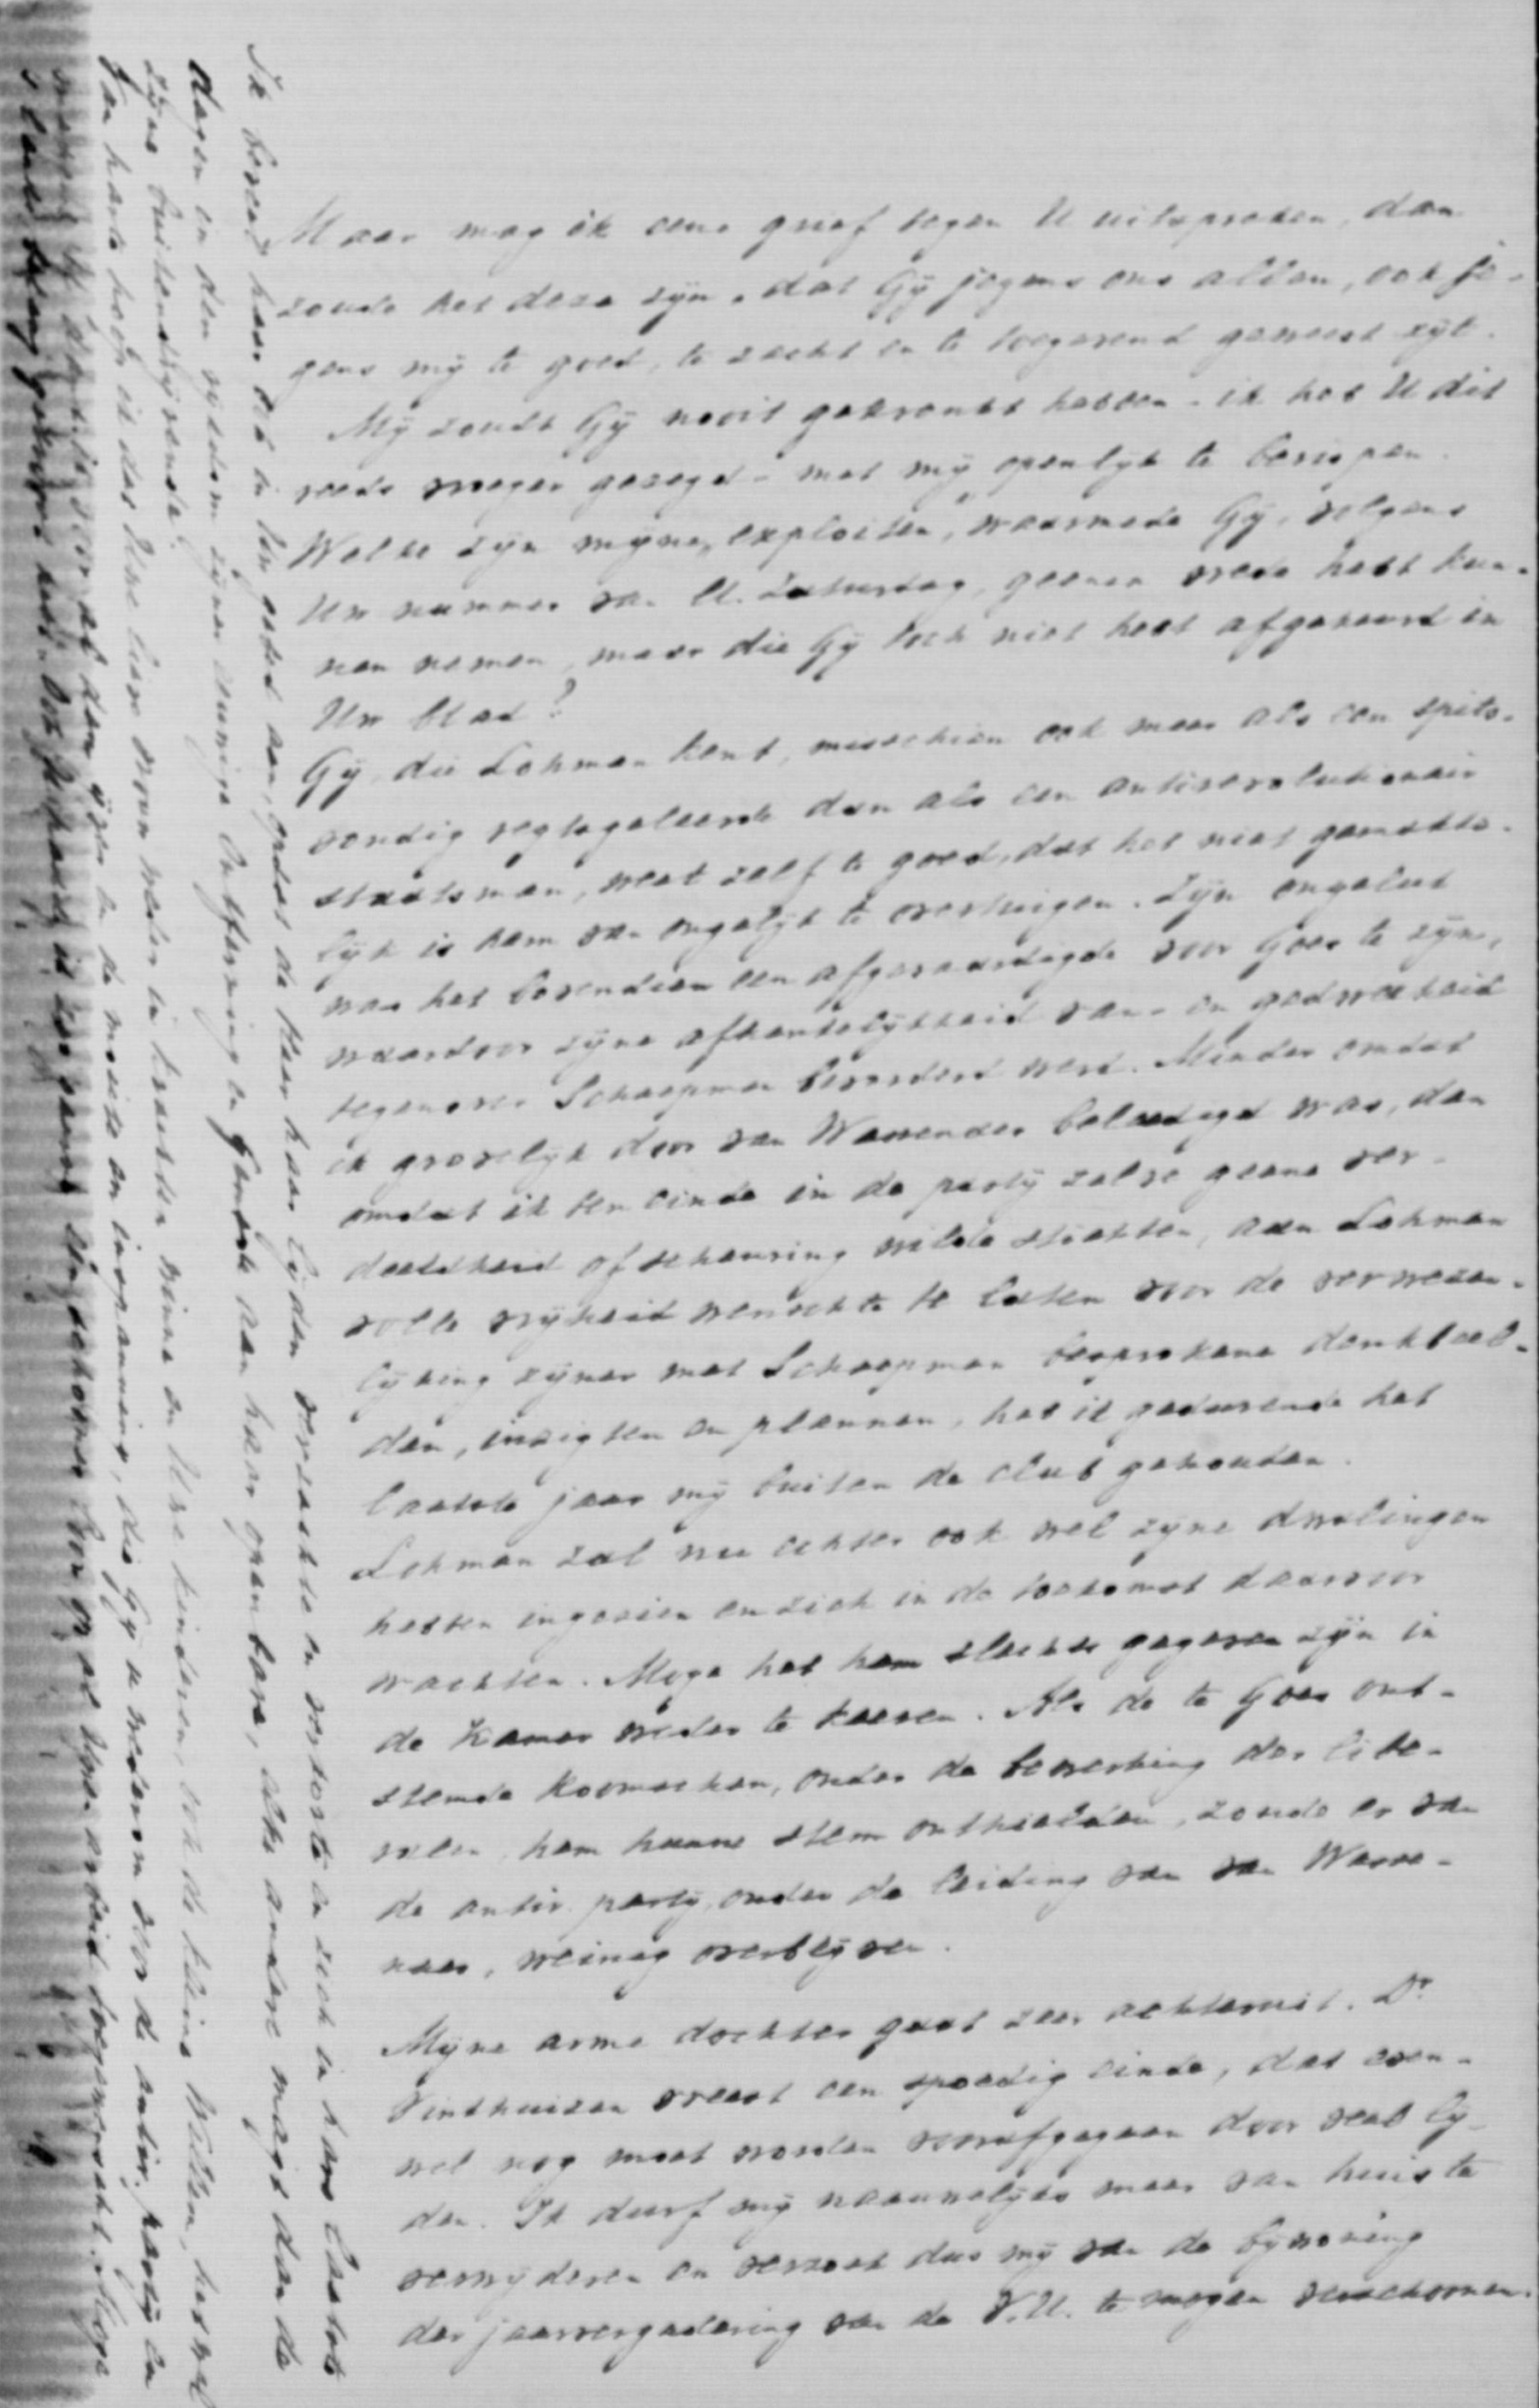 Maar mag ik eene grief tegen U uitspreken, dan
zoude het deze zijn, dat Gij jegens ons allen, ook je-
gens mij te goed, te zacht en te toegevend geweest zijt.
Mij zoudt Gij nooit gekrenkt hebben - ik heb U dit
reeds vroeger gezegd - met mij openlijk te berispen.
Welke zijn mijne exploiten, waarmede Gij, volgens
Uw nummer van ll. Zaturdag, geenen vrede hebt kun-
nen nemen, maar die Gij toch niet hebt afgekeurd in
Uw blad?
Gij, die Lohman kent, misschien ook meer als een spits-
vondig regtsgeleerde dan als een antirevolutionair
staatsman, weet zelf te goed, dat het niet gemakke-
lijk is hem van ongelijk te overtuigen. Zijn ongeluk
was het bovendien een afgevaardigde voor Goes te zijn,
waardoor zijne afhankelijkheid van en gedweeheid
tegenover Schaepman bevorderd werd. Minder omdat
ik grovelijk door van Wassenaer beleedigd was, dan
omdat ik ten einde in de partij zelve geene ver-
deeldheid of scheuring wilde stichten, aan Lohman
volle vrijheid wenschte te laten voor de verwezen-
lijking zijner met Schaepman besprokene denkbeel-
den, inzigten en plannen, heb ik gedurende het
laatste jaar mij buiten de club gehouden.
Lohman zal nu echter ook wel zijne dwalingen
hebben ingezien en zich in de toekomst daarvoor
wachten. Moge het hem slechts gegeven zijn in
de Kamer weder te keeren. Als de te Goes ont-
stemde Roomschen, onder de bewerking der libe-
ralen, hem hunne stem onthielden, zoude er van
de antir. partij, onder de leiding van van Wasse-
naer, weinig overblijven.
Mijne arme dochter gaat zeer achteruit. Dr.
Vinkhuizen vreest een spoedig einde, dat even-
wel nog moet worden voorafgegaan door veel lij-
den. Ik durf mij naauwelijks meer van huis te
verwijderen en verzoek dus mij van de bijwoning
der jaarvergadering van de V.U. te mogen verschoonen.
Ik beveel haar ook in Uw gebed aan, opdat de Heer haar lijden verzachte en verkorte en zich in hare laatste
dagen in den rijkdom Zijner eeuwige Ontferming en Genade aan haar openbare,